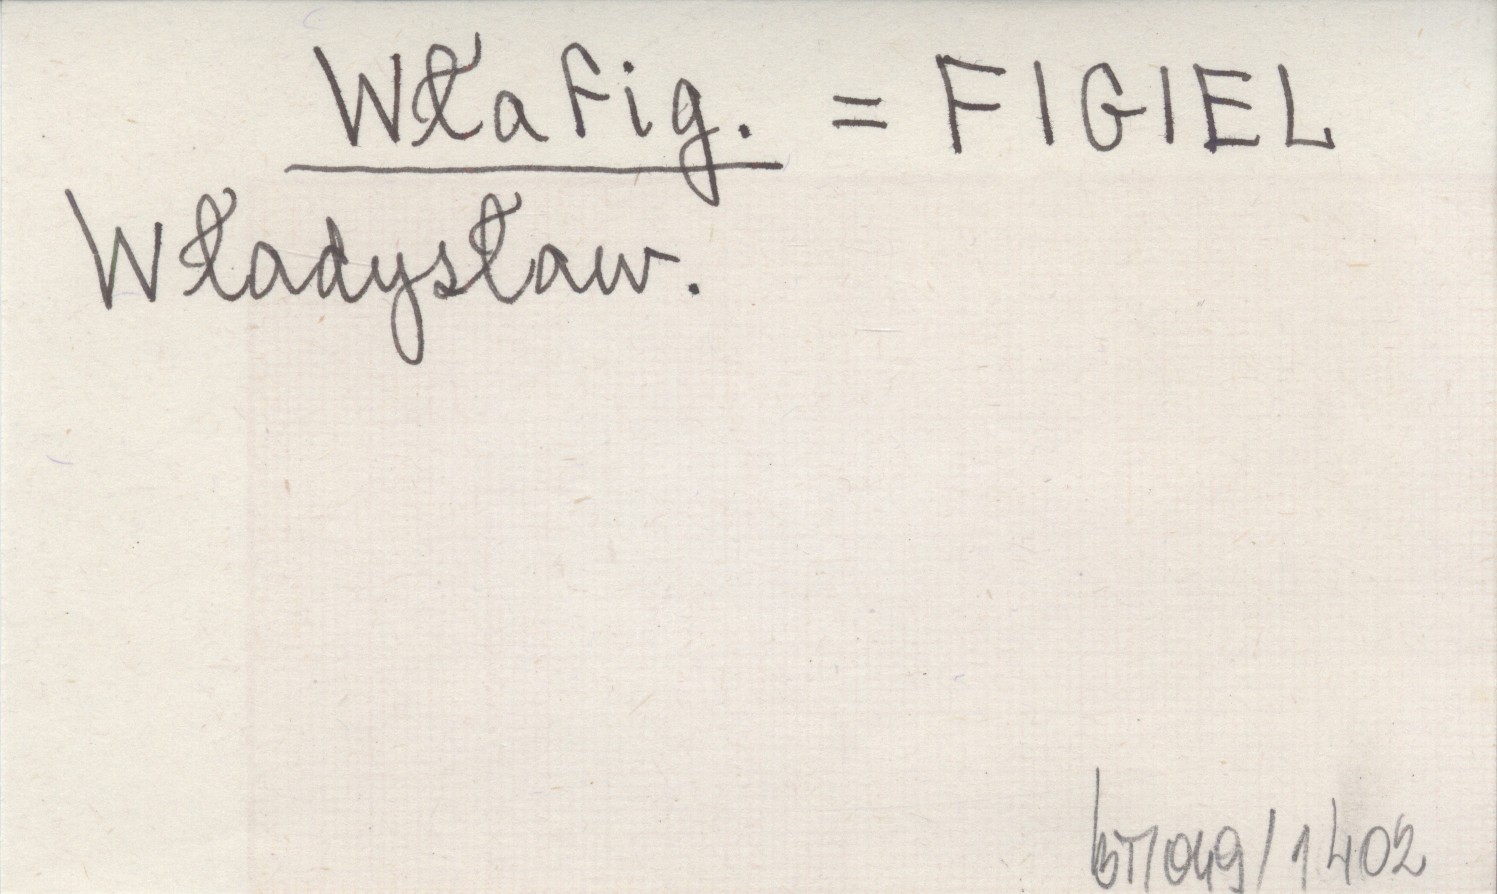 Wła Fig. = FIGIEL
Władysław.
/1402